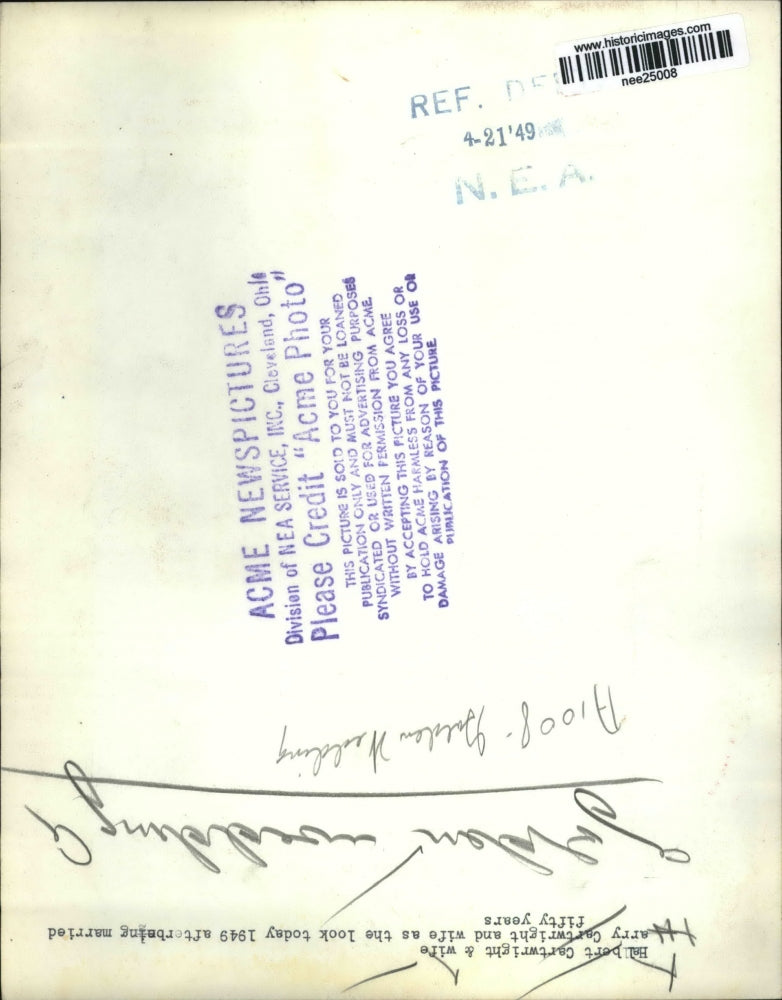 www.historicimages.com
nee25008
REF.
4-21'49
N. E. A.
ACME NEWSPICTURES
Division of NEA SERVICE, INC., Cleveland, Ohio
Please Credit "Acme Photo"
THIS PICTURE IS SOLD TO YOU FOR YOUR
PUBLICATION ONLY AND MUST NOT BE LOANED
SYNDICATED OR USED FOR ADVERTISING PURPOSES
WITHOUT WRITTEN PERMISSION FROM ACME.
BY ACCEPTING THIS PICTURE YOU AGREE
TO HOLD ACME HARMLESS FROM ANY LOSS OR
DAMAGE ARISING BY REASON OF YOUR USE OR
PUBLICATION OF THIS PICTURE
Halbert Cartwright & wife
arry Cartwright and wife as the look today 1949 after being married
fifty years
Golden Wedding
A1008- Golden Wedding